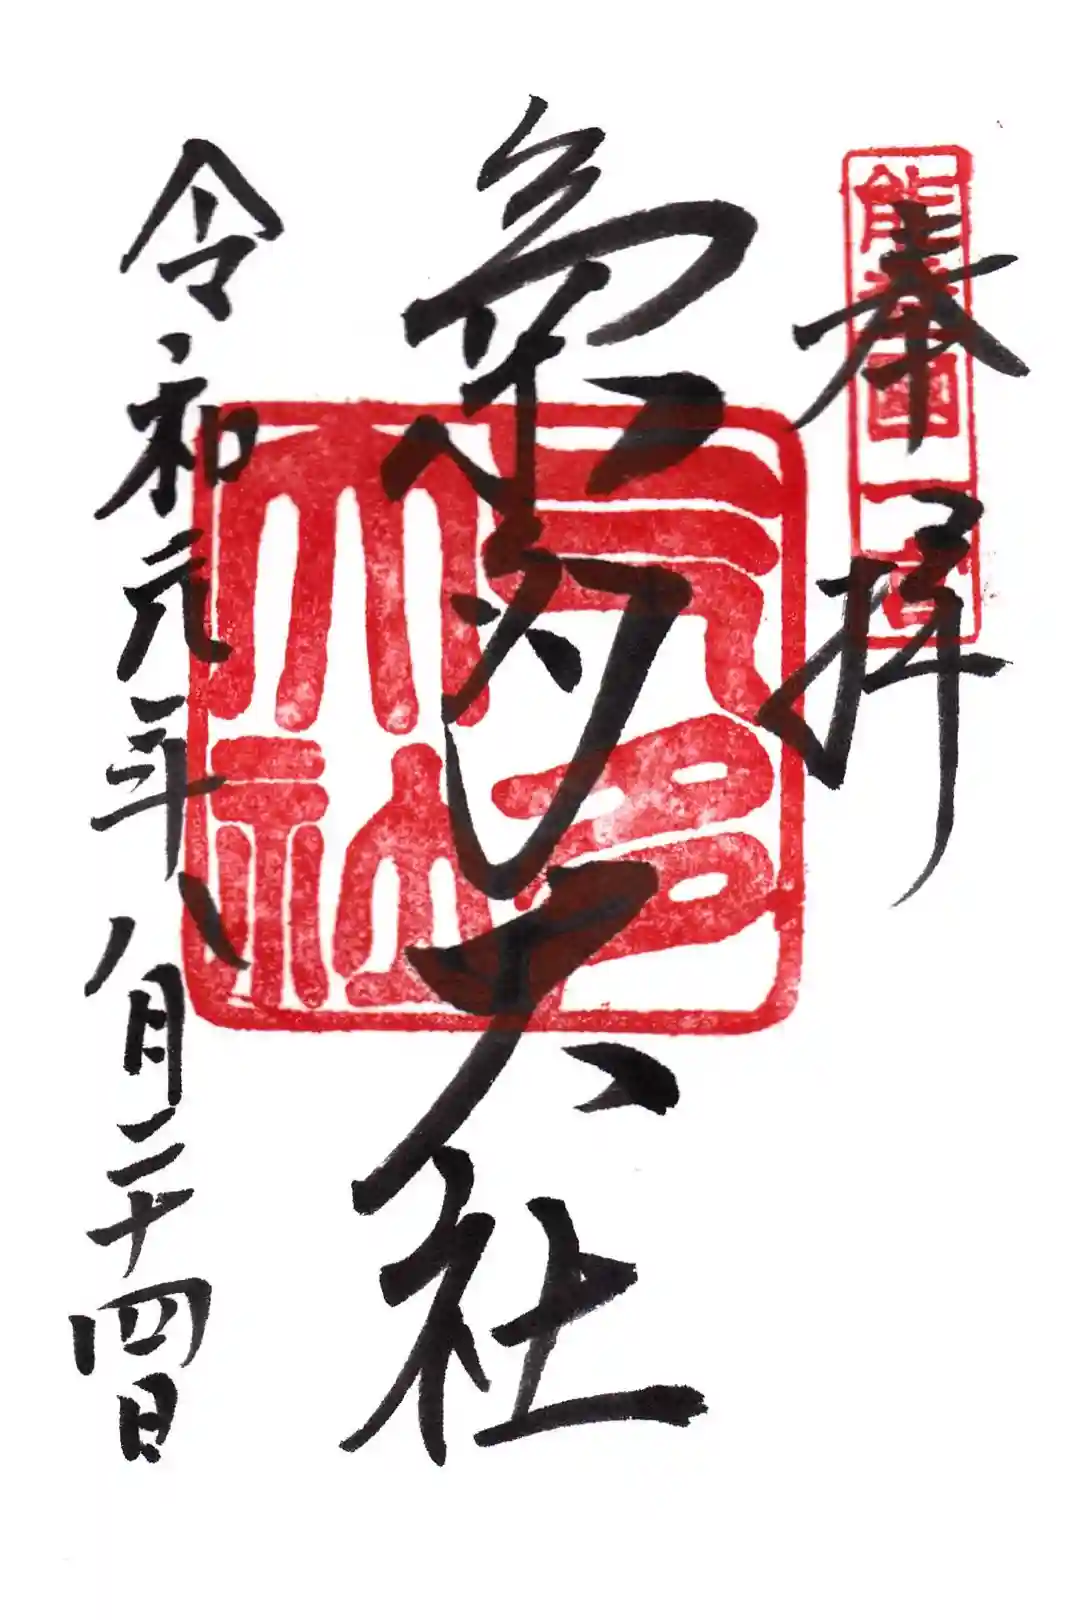 奉拝
能登國一宮
氣多大社
気多大社
令和元年八月二十四日